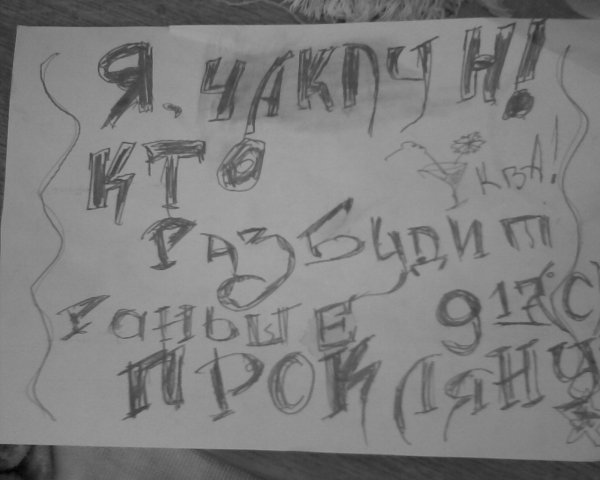 Я, ЧАКЛУН!
КТО
КВА!
РАЗБУДИТ
РАНЬШЕ 9 17°С
ПРОКЛЯНУ